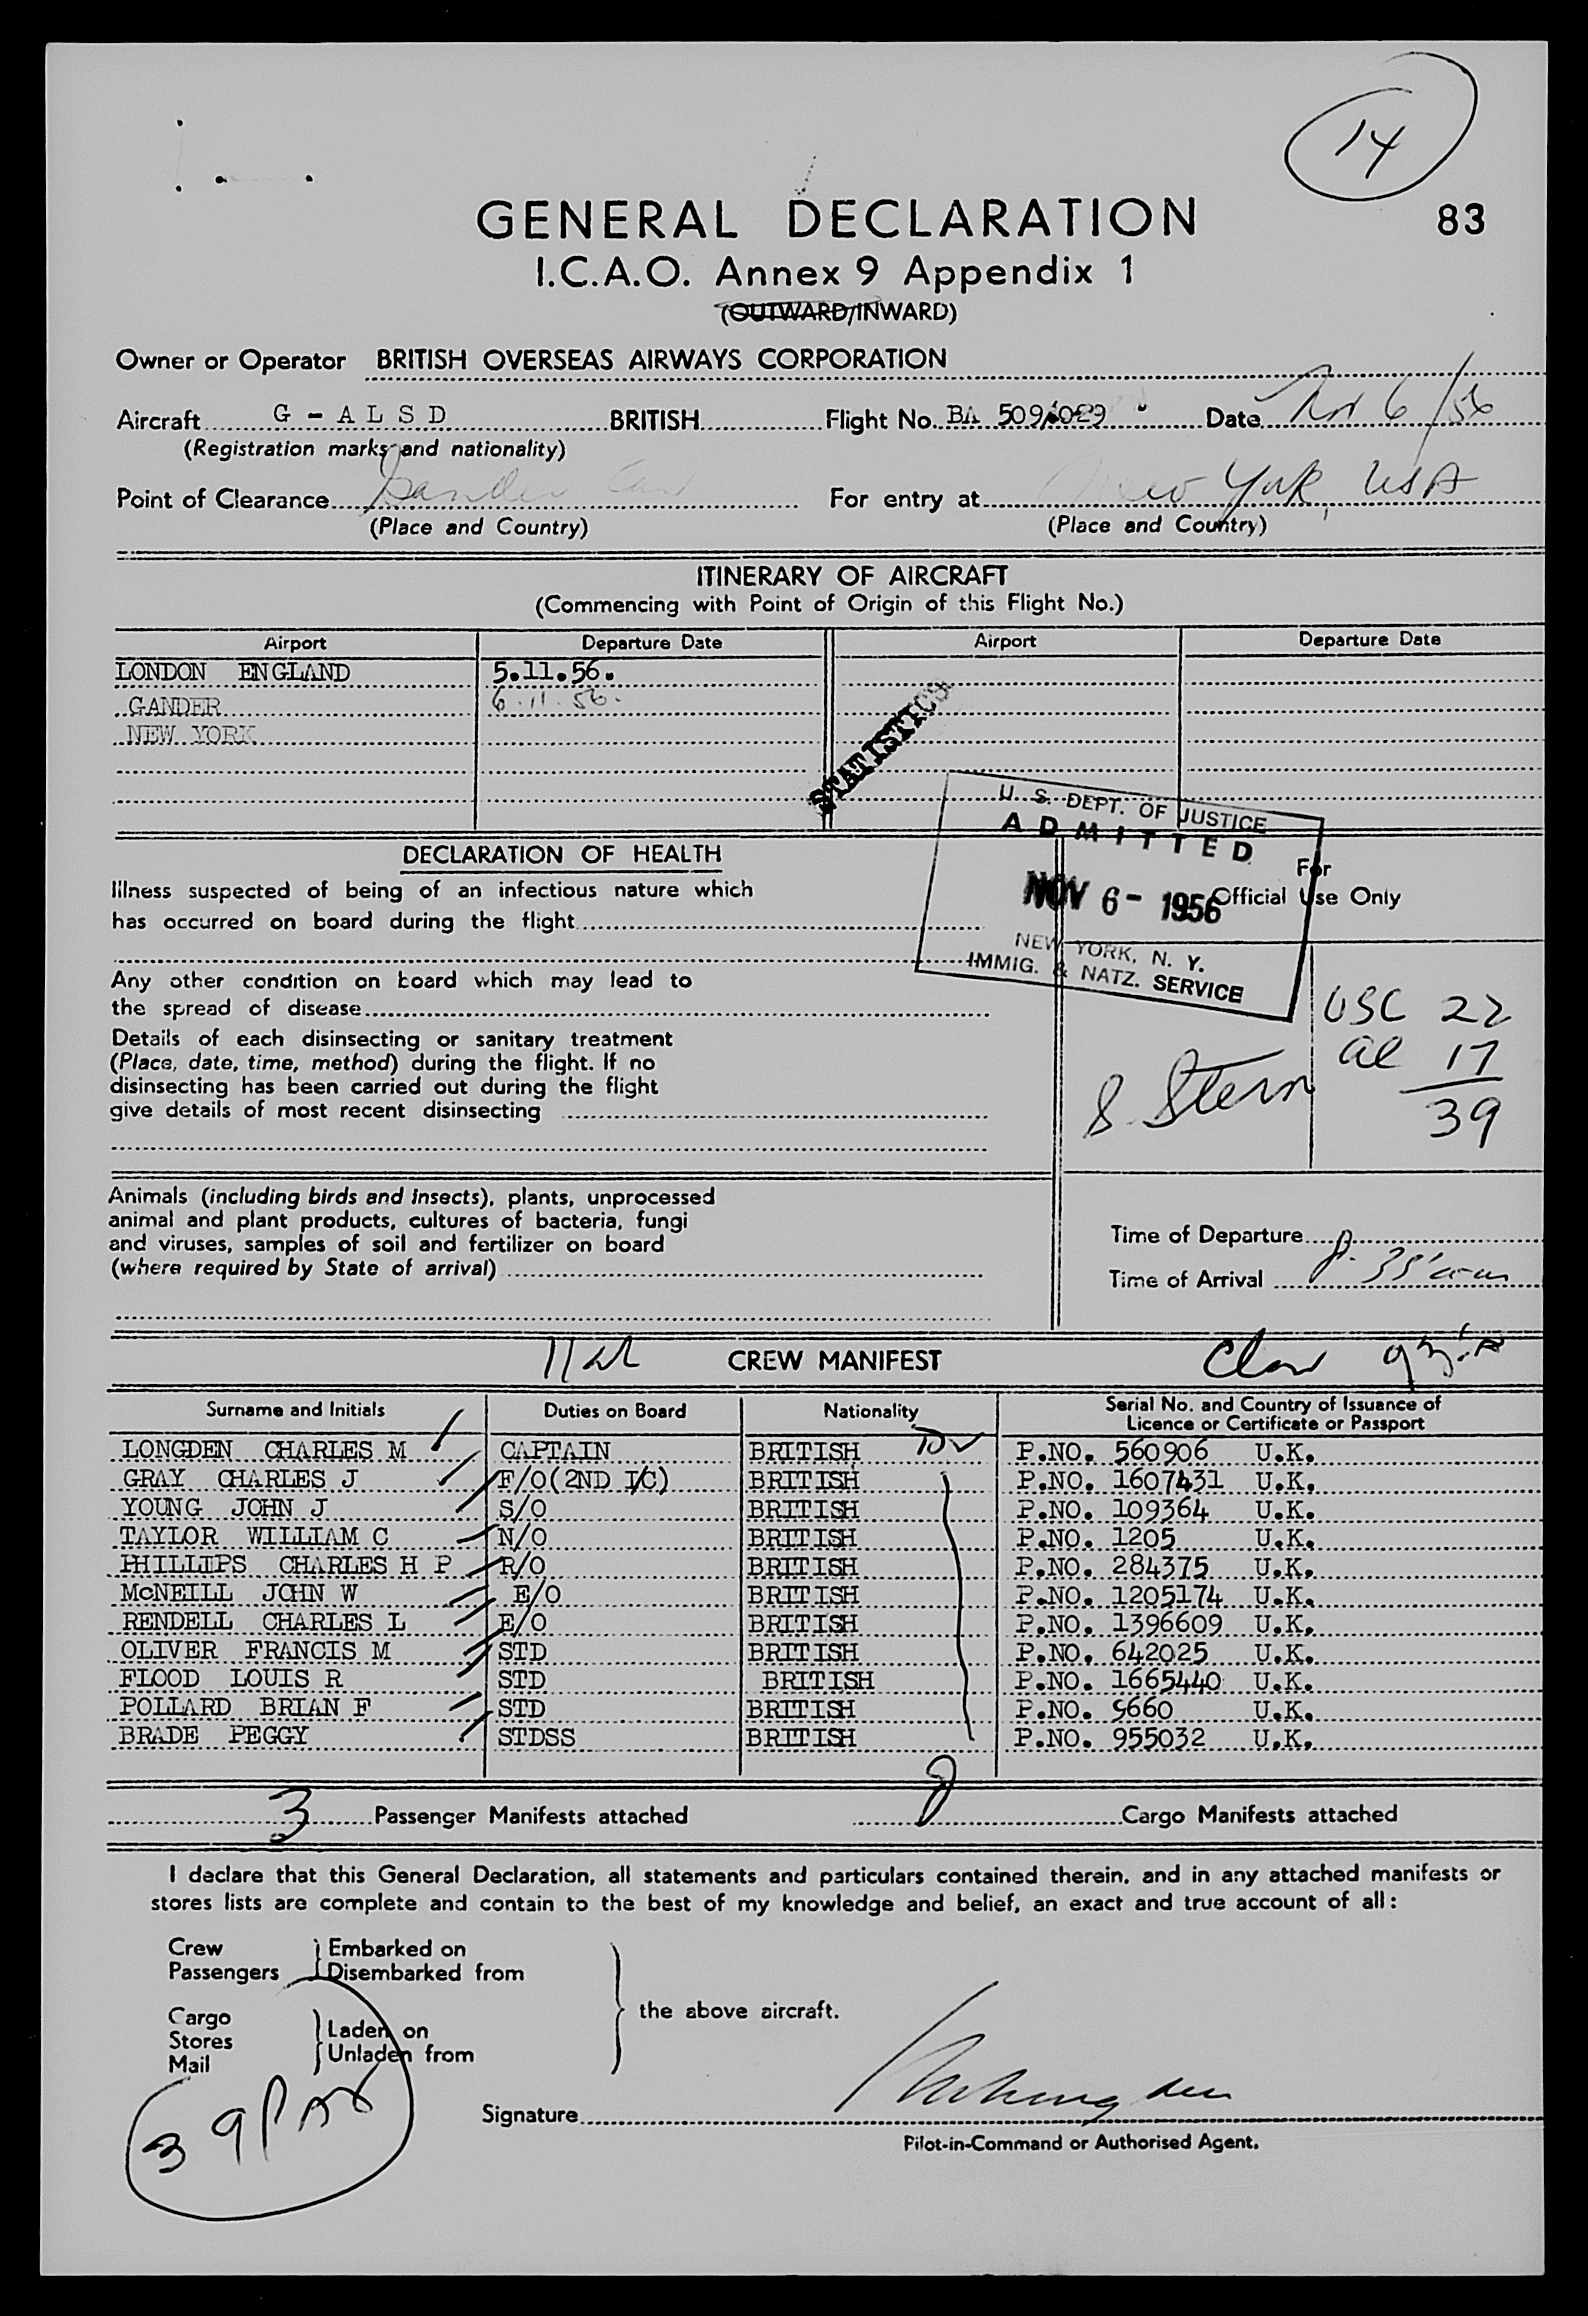 14
GENERAL DECLARATION 83
I.C.A.O. Annex 9 Appendix 1
(OUTWARD/INWARD)
Owner or Operator BRITISH OVERSEAS AIRWAYS CORPORATION
Aircraft G - A L S D BRITISH Flight No. BA 509/029 Date Nov 6/56
(Registration marks and nationality)
Point of Clearance Gander For entry at New York, USA
(Place and Country) (Place and Country)
ITINERARY OF AIRCRAFT
(Commencing with Point of Origin of this Flight No.)
Airport Departure Date Airport Departure Date
LONDON ENGLAND 5.11.56.
GANDER 6.11.56.
NEW YORK
STATISTICS
U. S. DEPT. OF JUSTICE
ADMITTED
NOV 6 - 1956
NEW YORK, N. Y.
IMMIG. & NATZ. SERVICE
For
Official Use Only
DECLARATION OF HEALTH
Illness suspected of being of an infectious nature which
has occurred on board during the flight
Any other condition on board which may lead to
the spread of disease
Details of each disinsecting or sanitary treatment
(Place, date, time, method) during the flight. If no
disinsecting has been carried out during the flight
give details of most recent disinsecting
USC 22
al 17
39
S. Stern
Animals (including birds and insects), plants, unprocessed
animal and plant products, cultures of bacteria, fungi
and viruses, samples of soil and fertilizer on board
(where required by State of arrival)
Time of Departure
Time of Arrival
CREW MANIFEST
Surname and Initials Duties on Board Nationality Serial No. and Country of Issuance of
Licence or Certificate or Passport
LONGDEN CHARLES M CAPTAIN BRITISH P.NO. 560906 U.K.
GRAY CHARLES J F/O(2ND I/C) BRITISH P.NO. 1607431 U.K.
YOUNG JOHN J S/O BRITISH P.NO. 109364 U.K.
TAYLOR WILLIAM C N/O BRITISH P.NO. 1205 U.K.
PHILLIPS CHARLES H P R/O BRITISH P.NO. 284375 U.K.
McNEILL JOHN W E/O BRITISH P.NO. 1205174 U.K.
RENDELL CHARLES L E/O BRITISH P.NO. 1396609 U.K.
OLIVER FRANCIS M STD BRITISH P.NO. 642025 U.K.
FLOOD LOUIS R STD BRITISH P.NO. 1665440 U.K.
POLLARD BRIAN F STD BRITISH P.NO. 9660 U.K.
BRADE PEGGY STDSS BRITISH P.NO. 955032 U.K.
3 Passenger Manifests attached Cargo Manifests attached
I declare that this General Declaration, all statements and particulars contained therein, and in any attached manifests or
stores lists are complete and contain to the best of my knowledge and belief, an exact and true account of all:
Crew Embarked on
Passengers Disembarked from
the above aircraft.
Cargo
Stores Laden on
Mail Unladen from
39 PAX
Signature
Pilot-in-Command or Authorised Agent.